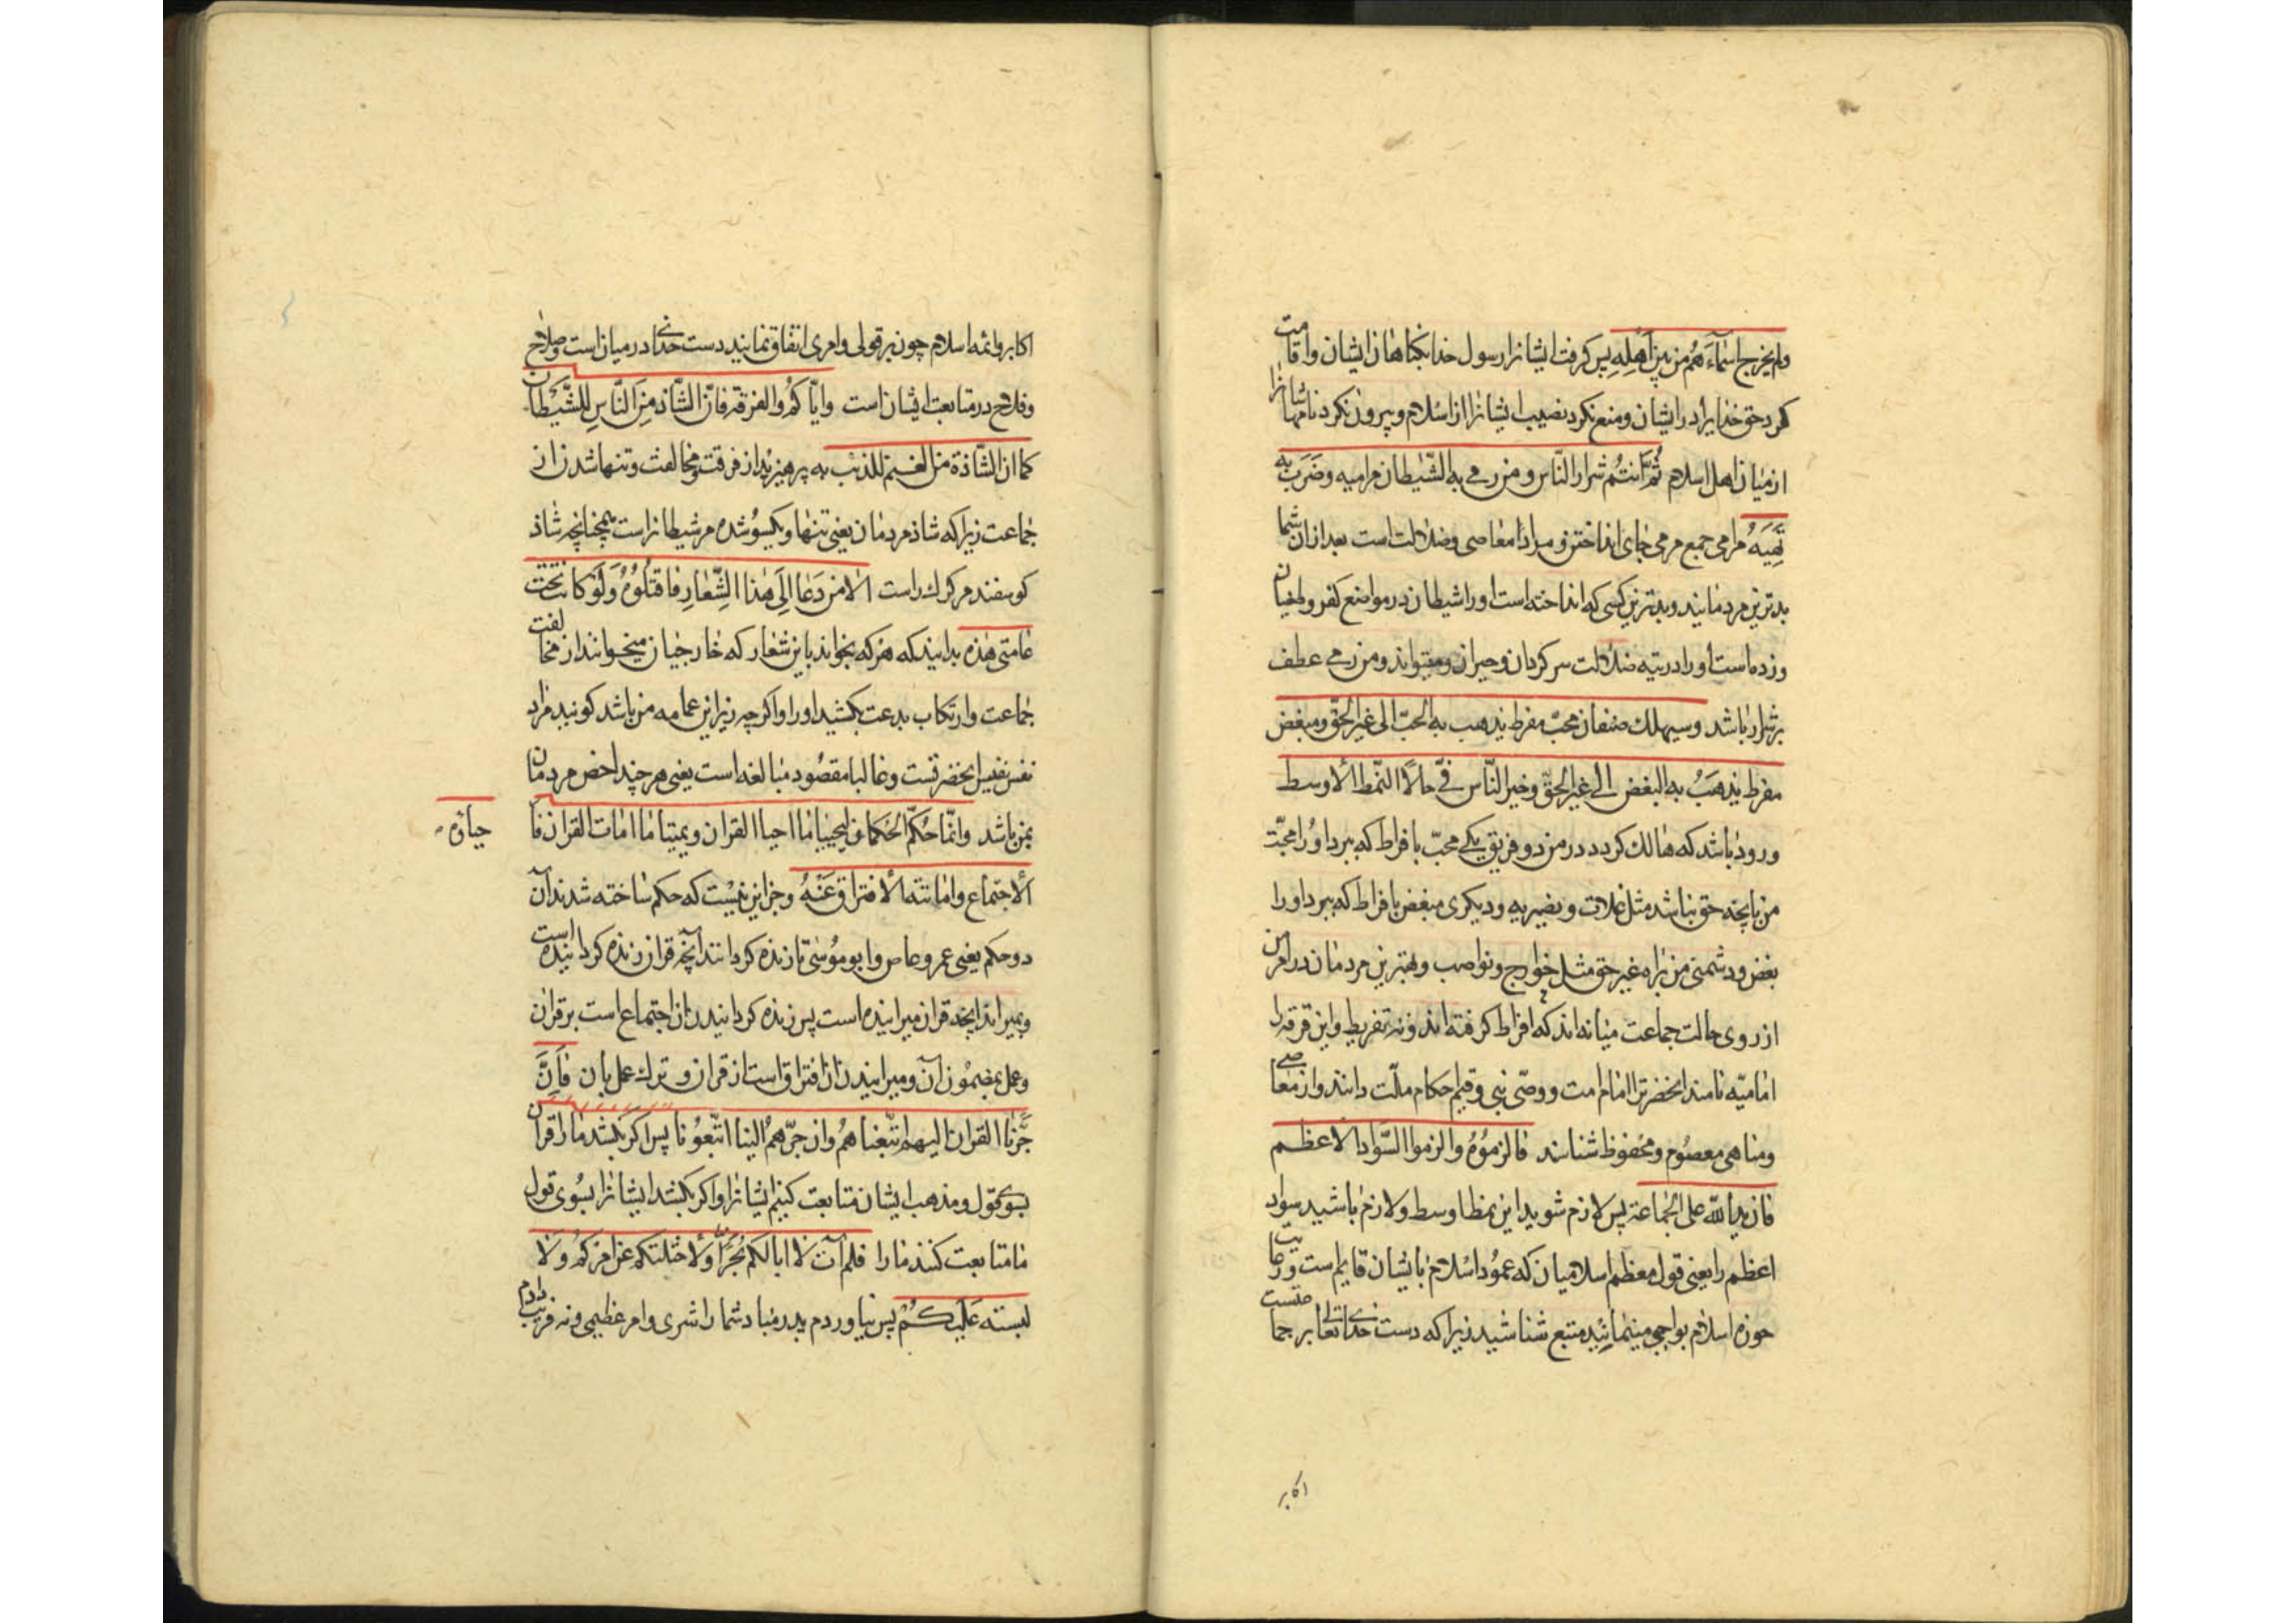 ولم یخرج اسماءهم من بین اهله پس کرفت ایشانرا رسول خدا بکناهان ایشان واقامت
کرد حق خدایرا در ایشان ومنع نکرد نصیب ایشانرا از اسلام وبیرون نکرد نامهاشانرا
از میان اهل اسلام ثم انتم شرار الناس ومن رمی به الشیطان مرامیه وضرب به
تیهه مرامی جمع مرمی جای انداختن ومراد معاصی وضلالت است بعد ازان شما
بدترین مردمانید وبدترین کسی که انداخته است اورا شیطان در مواضع کفر وطغیان
وزده است اورا در تیه ضلالت سرکردان وحیران ومیتواند ومن رمی عطف
بر شرار باشد وسیهلک صنفان محب مفرط یذهب به الحب الی غیر الحق ومبغض
مفرط یذهب به البغض الی غیر الحق وخیر الناس فی حالا النمط الاوسط
وزود باشد که هالک کردد در من دو فریق یکی محب با فراط که ببرد اورا محبت
من بانچه حق نباشد مثل غلات ونصیریه ودیکری مبغض بافراط که ببرد اورا
بغض ودشمنی من براه غیر حق مثل خوارج ونواصب وبهترین مردمان در امر من
از روی حالت جماعت میانه اند که افراط کرفته اند ونه تفریط واین فرقه را
امامیه نامند انحضرترا امام امت ووصی نبی وقیم احکام ملت دانند واز معاصی
ومناهی معصوم ومحفوظ شناسند فالزموه والزموا السواد الاعظم
فان ید الله علی الجماعة پس لازم شوید این نمط اوسط ولازم باشید سواد
اعظم را یعنی قول معظم اسلامیان که عمود اسلام بایشان قایم است ورعایت
حوزه اسلام بواجبی مینمایند متبع شناشید زیرا که دست خدای تعالی بر جماعتست
اکابر
اکابر وائمه اسلام چون بر قولی وامری اتفاق نمایند دست خدای در میان است وصلاح
وفلاح در متابعت ایشان است وایاکم والفرقة فان الشاذ من الناس للشیطان
کما ان الشاذة من الغنم للذئب به پرهیزید از فرقت ومخالفت وتنها شدن از
جماعت زیرا که شاذ مردمان یعنی تنها ویکسو شده مر شیطانراست همچنانچه شاذ
کوسفند مر کرک راست الا من دعا الی هذا الشعار فاقتلوه ولو کان تحت
عامتی هذه بدانید که هر که بخواند باین شعار که خارجیان میخوانند از مخالفت
جماعت وارتکاب بدعت بکشید اورا واکر چه زیر این عمامه من باشد کونید مراد
نفس نفیس انحضرتست وغالبا مقصود مبالغه است یعنی هر چند اخص مردمان
بمن باشد وانما حکم الحکمان لیحییا ما احیا القران ویمیتا ما امات القران فا
حیاؤه
الاجتماع واماتته الافتراق عنه وجز این نیست که حکم ساخته شدند آن
دو حکم یعنی عمرو عاص وابو موسی تا زنده کردانند آنچه قران زنده کردانیده است
وبمیرانند انچه قران میرانیده است پس زنده کردانیدن ان اجتماع است بر قران
وعمل بمضمون آن ومیرانیدن ان افتراق است از قران وترک عمل بان فان
جرنا القران الیهم اتبعناهم وان جرهم الینا اتبعونا پس اکر بکشد مارا قران
بسوی قول ومذهب ایشان متابعت کنیم ایشانرا واکر بکشد ایشانرا بسوی قول
ما متابعت کنند مارا فلم آت لا ابا لکم بجرا ولا ختلتکم عن امرکم ولا
لبسته علیکم پس نیاوردم پدر مبادشمارا شری وامر عظیمی ونه فریب دادم